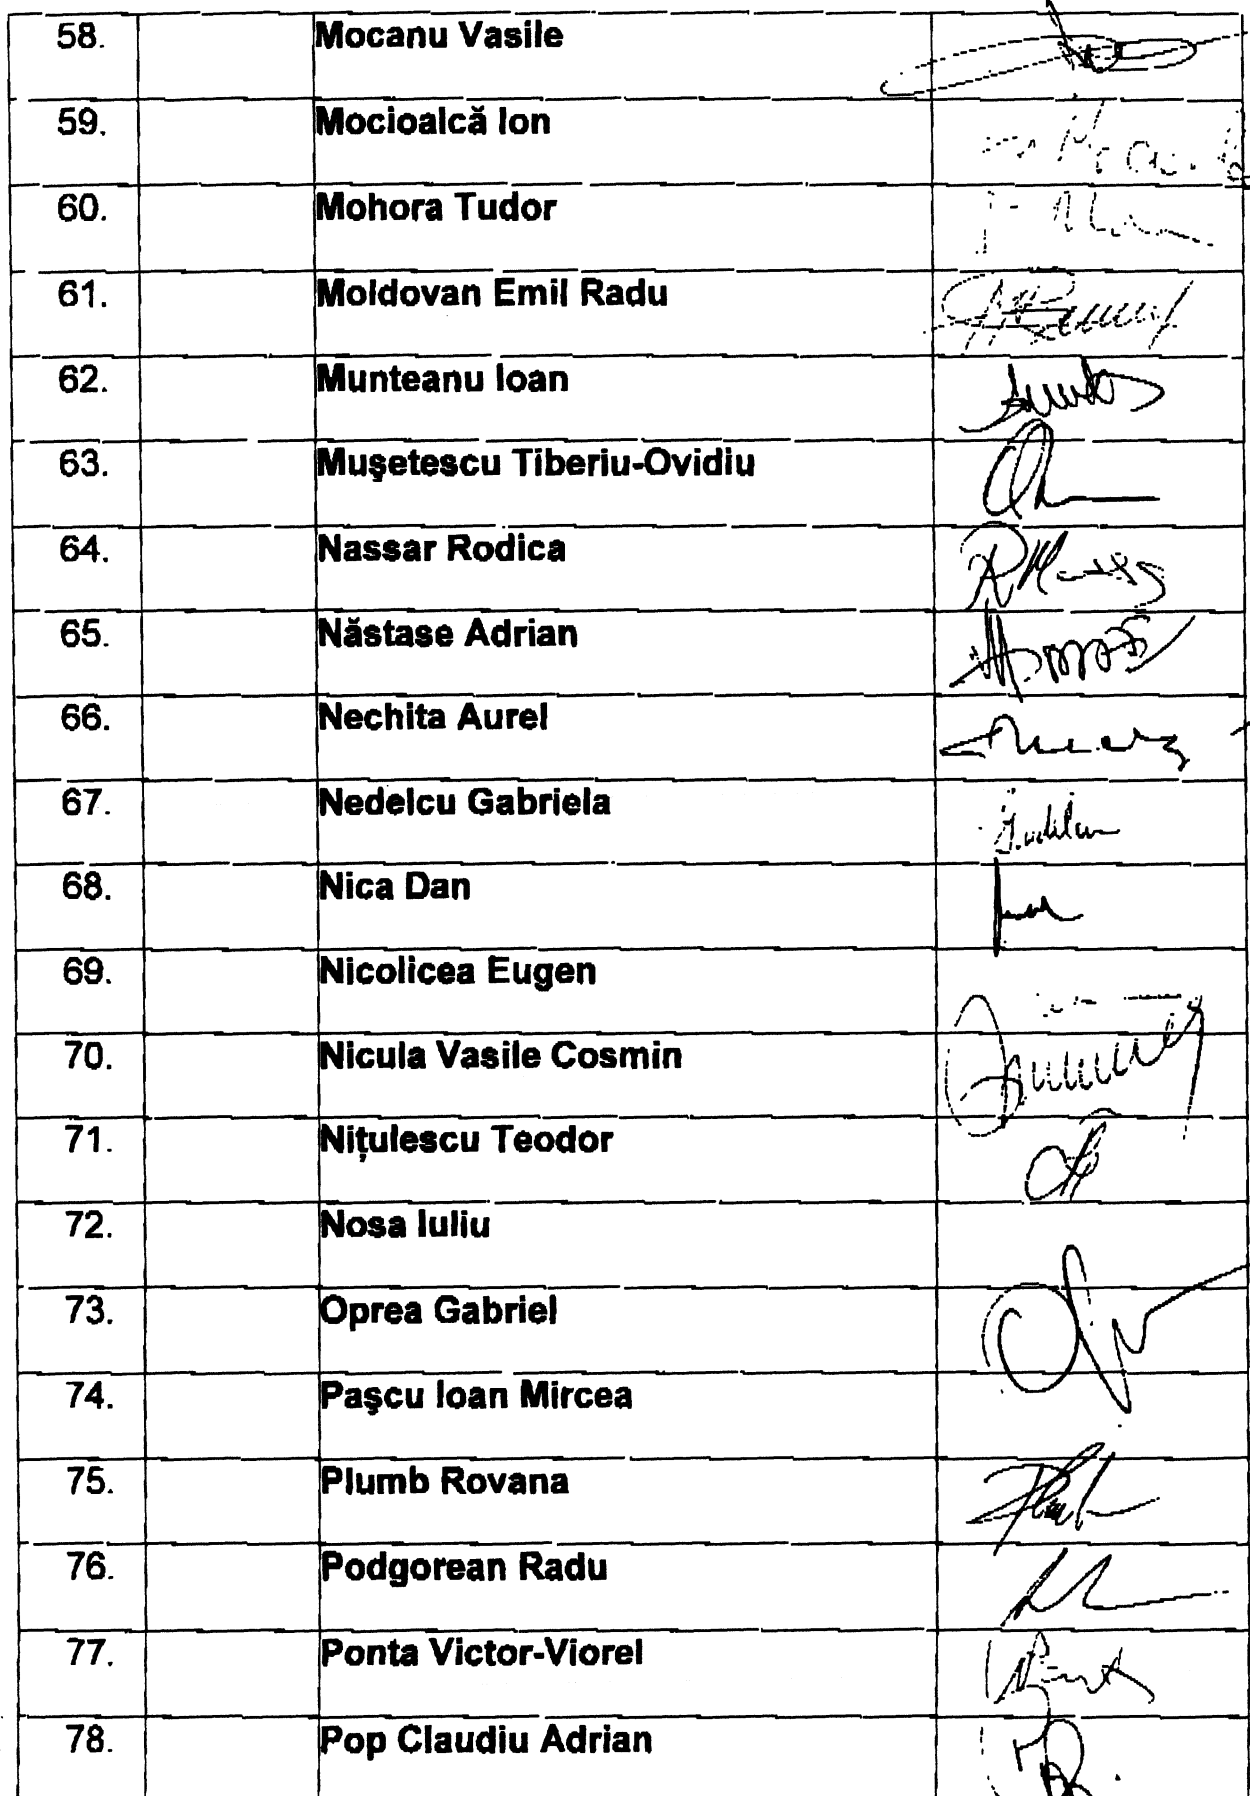 58. Mocanu Vasile
59. Mocioalcă Ion
60. Mohora Tudor
61. Moldovan Emil Radu
62. Munteanu Ioan
63. Muşetescu Tiberiu-Ovidiu
64. Nassar Rodica
65. Năstase Adrian
66. Nechita Aurel
67. Nedelcu Gabriela
68. Nica Dan
69. Nicolicea Eugen
70. Nicula Vasile Cosmin
71. Niţulescu Teodor
72. Nosa Iuliu
73. Oprea Gabriel
74. Paşcu Ioan Mircea
75. Plumb Rovana
76. Podgorean Radu
77. Ponta Victor-Viorel
78. Pop Claudiu Adrian